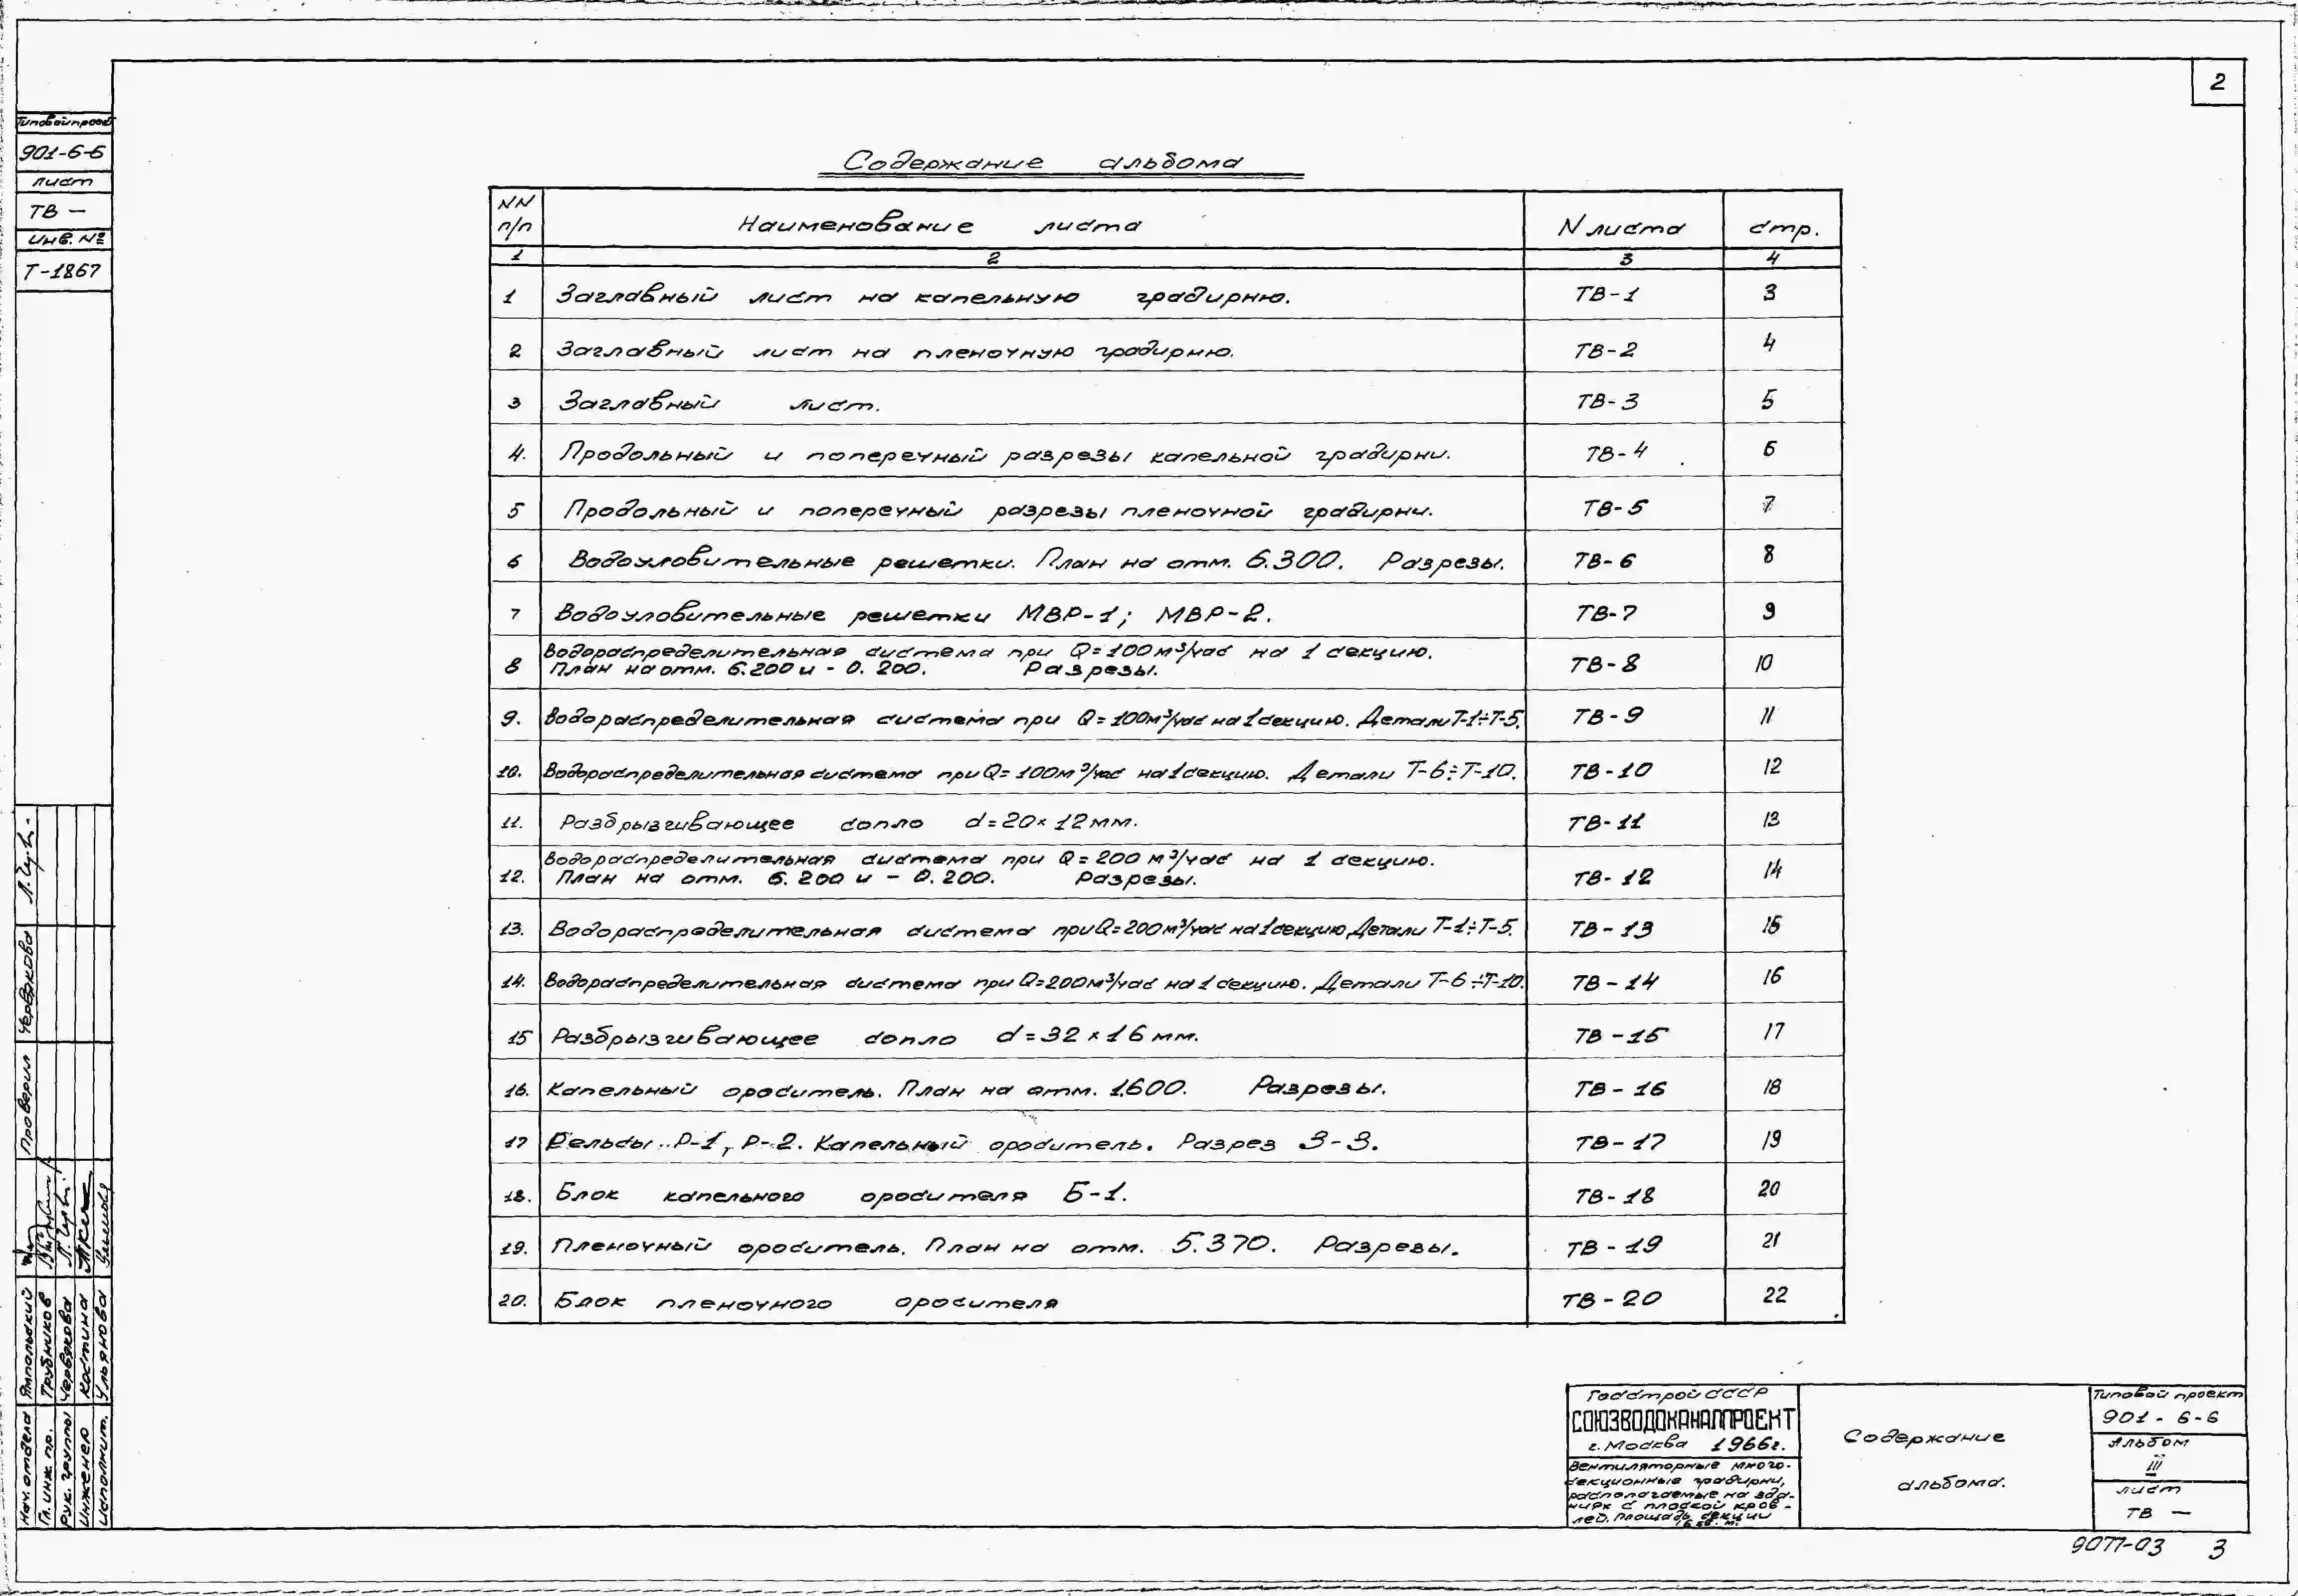 2
Типовой проект
901-6-6
лист
ТВ —
Инв. №
Т-1867
Содержание альбома
NN п/п Наименование листа N листа стр.
1 2 3 4
1 Заглавный лист на капельную градирню. ТВ-1 3
2 Заглавный лист на пленочную градирню. ТВ-2 4
3 Заглавный лист. ТВ-3 5
4. Продольный и поперечный разрезы капельной градирни. ТВ-4 6
5 Продольный и поперечный разрезы пленочной градирни. ТВ-5 7
6 Водоуловительные решетки. План на отм. 6.300. Разрезы. ТВ-6 8
7 Водоуловительные решетки МВР-1; МВР-2. ТВ-7 9
Водораспределительная система при Q=100м³/час на 1 секцию.
8 План на отм. 6.200 и - 0.200. Разрезы. ТВ-8 10
9. Водораспределительная система при Q=100м³/час на 1 секцию. Детали Т-1÷Т-5. ТВ-9 11
10. Водораспределительная система при Q=100м³/час на 1 секцию. Детали Т-6÷Т-10. ТВ-10 12
11. Разбрызгивающее сопло d=20×12мм. ТВ-11 13
Водораспределительная система при Q=200 м³/час на 1 секцию.
12. План на отм. 6.200 и - 0.200. Разрезы. ТВ-12 14
13. Водораспределительная система при Q=200м³/час на 1 секцию Детали Т-1÷Т-5. ТВ-13 15
14. Водораспределительная система при Q=200м³/час на 1 секцию. Детали Т-6÷Т-10. ТВ-14 16
15 Разбрызгивающее сопло d=32×16мм. ТВ-15 17
16. Капельный ороситель. План на отм. 1.600. Разрезы. ТВ-16 18
17 Рельсы Р-1, Р-2. Капельный ороситель. Разрез 3-3. ТВ-17 19
18. Блок капельного оросителя Б-1. ТВ-18 20
19. Пленочный ороситель. План на отм. 5.370. Разрезы. ТВ-19 21
20. Блок пленочного оросителя ТВ-20 22
Проверил Червякова
Нач. отдела Ямпольский
Гл. инж. пр. Трубников
Рук. группы Червякова
Инженер Костина
Исполнит. Ульянова
Госстрой СССР
СОЮЗВОДОКАНАЛПРОЕКТ
г. Москва 1966г.
Вентиляторные много-
секционные градирни,
располагаемые на зда-
ниях с плоской кров-
лей. Площадь секции
16 кв. м.
Содержание
альбома.
Типовой проект
901-6-6
Альбом
III
лист
ТВ —
9077-03 3